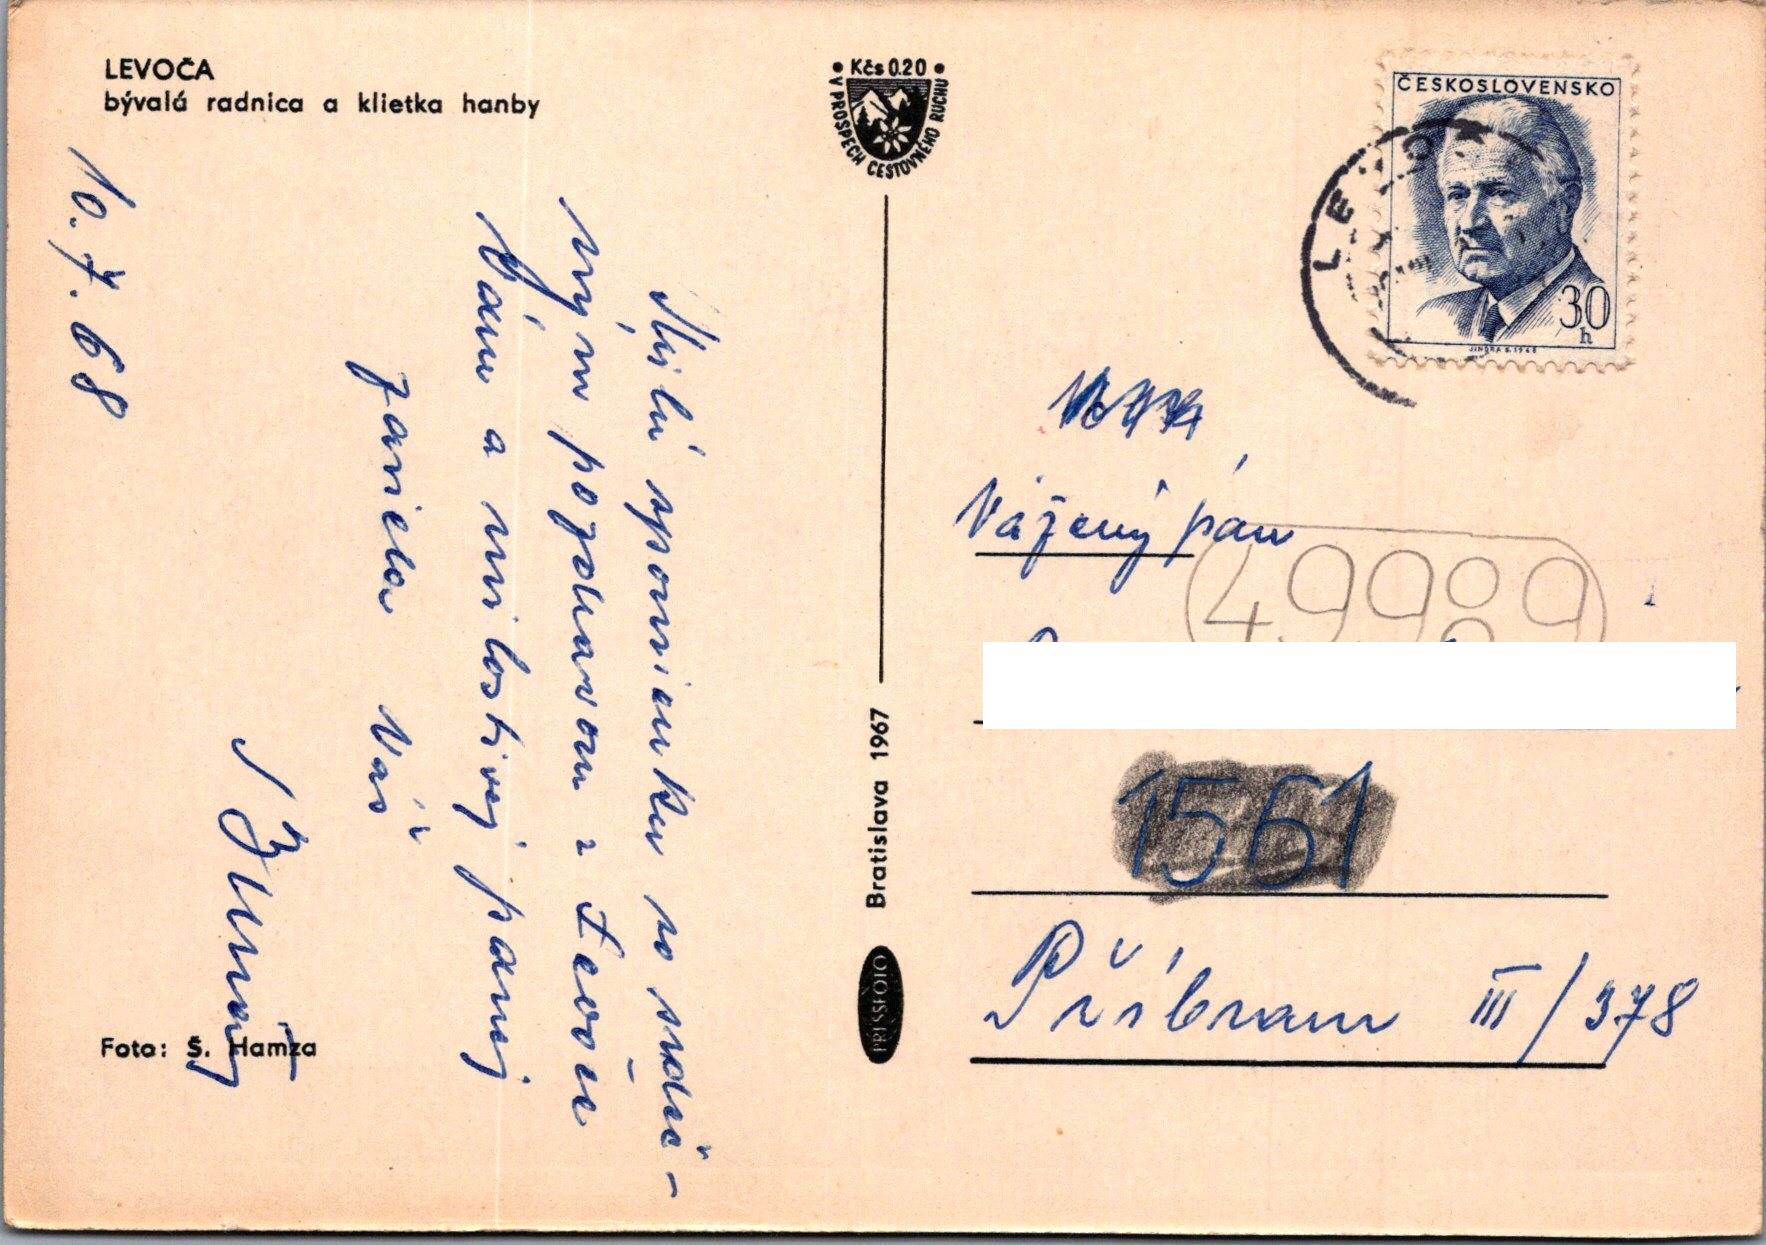 LEVOČA
bývalá radnica a klietka hanby
10.7.68
Milú spomienku so srdeč-
ným pozdravom z Levoče
Vám a milostivej panej
zasiela Váš
Foto: Š. Hamza
• Kčs 0.20 •
V PROSPECH CESTOVNÉHO RUCHU
Bratislava 1967
PRESSFOTO
ČESKOSLOVENSKO
30
h
JINDRA S. 1968
LEVOČ
Vážený pán
49989
1561
Příbram III/378